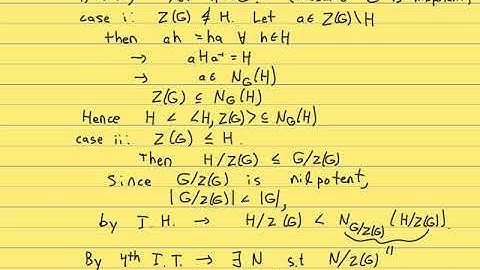 case i: Z(G) ≰ H. Let a ∈ Z(G)\H
then ah = ha ∀ h∈H
→ aHa⁻¹ = H
→ a∈ N_G(H)
Z(G) ≤ N_G(H)
Hence H < <H, Z(G)> ≤ N_G(H)
case ii: Z(G) ≤ H.
Then H/Z(G) ≤ G/Z(G)
Since G/Z(G) is nilpotent,
|G/Z(G)| < |G|,
by I.H. → H/Z(G) < N_{G/Z(G)}(H/Z(G)).
By 4th I.T. → ∃ N s.t N/Z(G) "